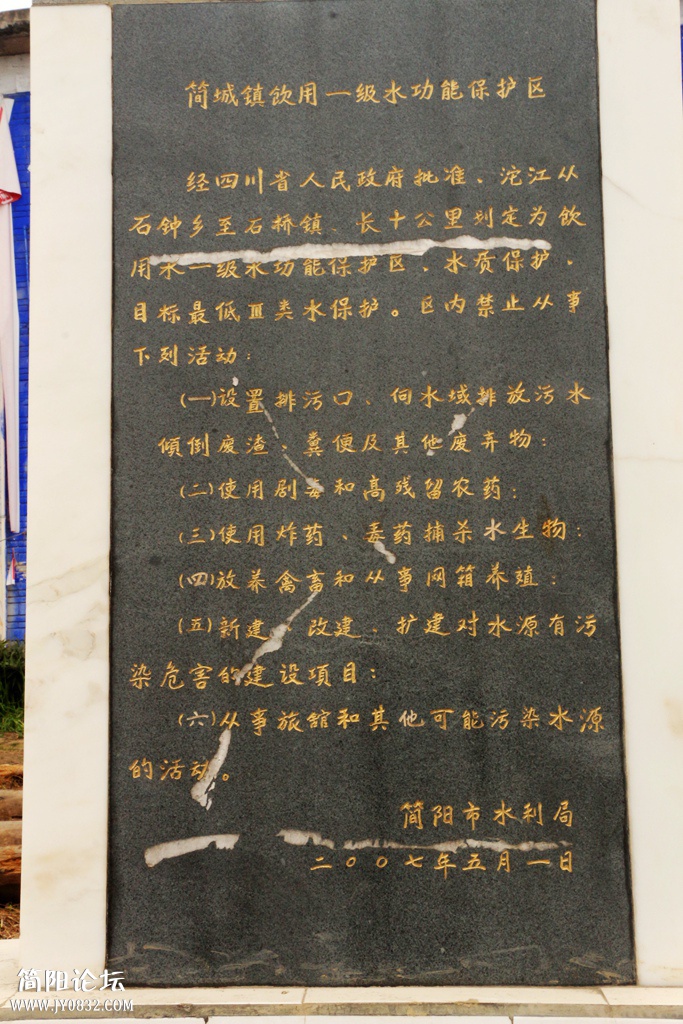 简城镇饮用一级水功能保护区
经四川省人民政府批准、沱江从
石钟乡至石桥镇、长十公里划定为饮
用水一级水功能保护区、水质保护、
目标最低Ⅲ类水保护。区内禁止从事
下列活动:
(一)设置排污口、向水域排放污水
倾倒废渣、粪便及其他废弃物;
(二)使用剧毒和高残留农药;
(三)使用炸药、毒药捕杀水生物;
(四)放养禽畜和从事网箱养殖;
(五)新建、改建、扩建对水源有污
染危害的建设项目;
(六)从事旅舘和其他可能污染水源
的活动。
简阳市水利局
二〇〇七年五月一日
简阳论坛
WWW.JY0832.COM